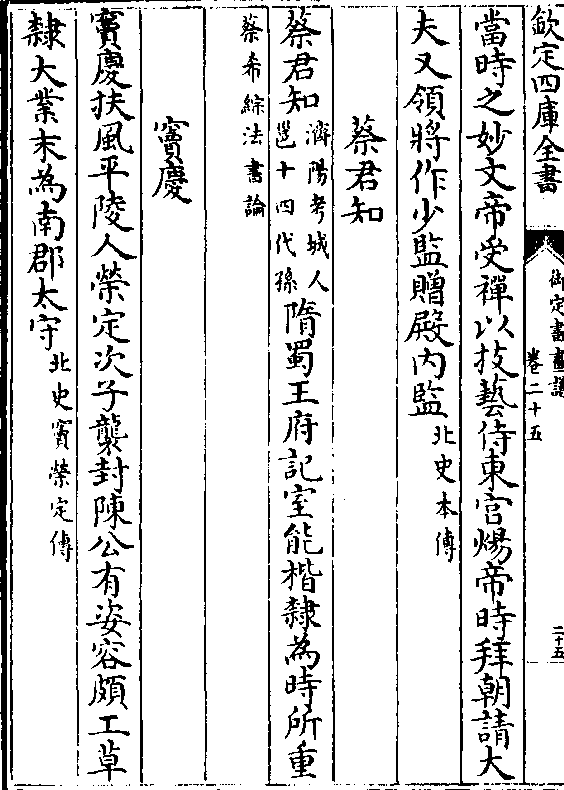 欽定四庫全書
御定書畫譜
卷二十五
二十五
當時之妙文帝受禪以技藝侍東宫煬帝時拜朝請大
夫又領將作少監贈殿内監北史本傳
蔡君知
蔡君知濟陽考城人邕十四代孫隋蜀王府記室能楷隸為時所重
蔡希綜法書論
竇慶
竇慶扶風平陵人榮定次子襲封陳公有姿容頗工草
隸大業末為南郡太守北史竇榮定傳